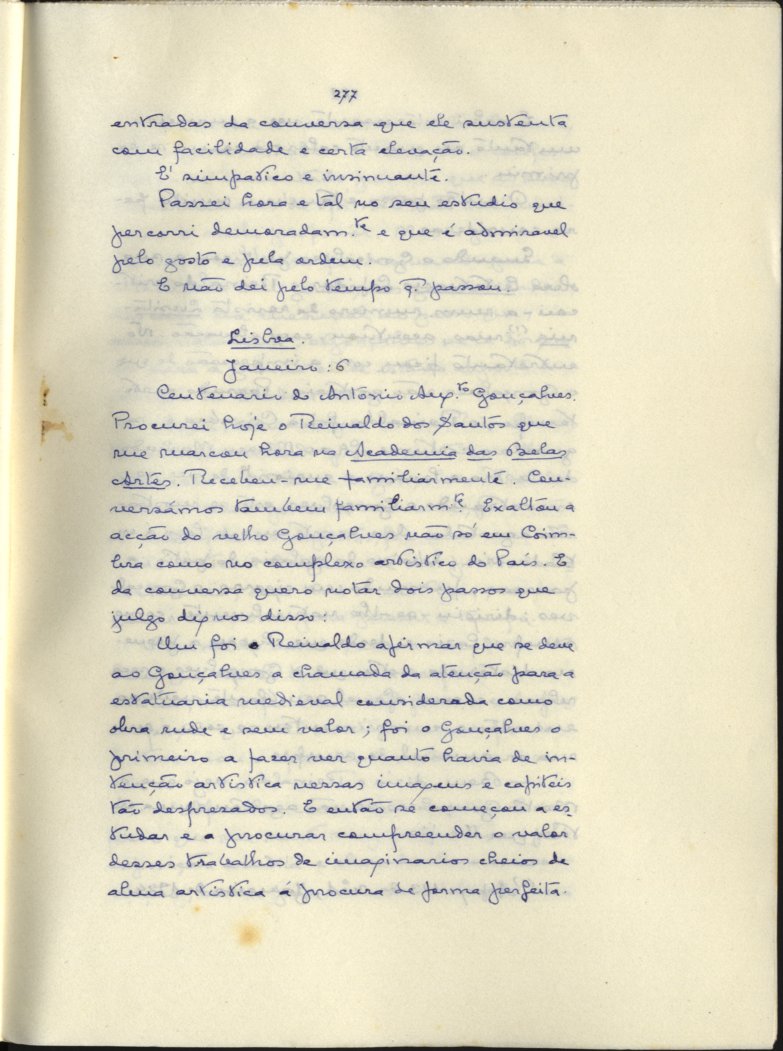 277
entradas da conversa que ele sustenta
com facilidade e certa elevação.
E' simpatico e insinuante.
Passei hora e tal no seu estudio que
percorri demoradam.te e que é admiravel
pelo gosto e pela ordem.
E não dei pelo tempo q. passou.
Lisboa.
Janeiro: 6
Centenario do Antonio Aug.to Gonçalves.
Procurei hoje o Reinaldo dos Santos que
me marcou hora na Academia das Belas
Artes. Recebeu-me familiarmente. Con-
versámos tambem familiarm.te. Exaltou a
acção do velho Gonçalves não só em Coim-
bra como no complexo artistico do País. E
da conversa quero notar dois passos que
julgo dignos disso:
Um foi o Reinaldo afirmar que se deve
ao Gonçalves a chamada da atenção para a
estatuaria medieval considerada como
obra rude e sem valor; foi o Gonçalves o
primeiro a fazer ver quanto havia de in-
tenção artistica nessas imagens e capiteis
tão desprezados. E então se começou a es-
tudar e a procurar compreender o valor
desses trabalhos de imaginarios cheios de
alma artistica á procura de forma perfeita.